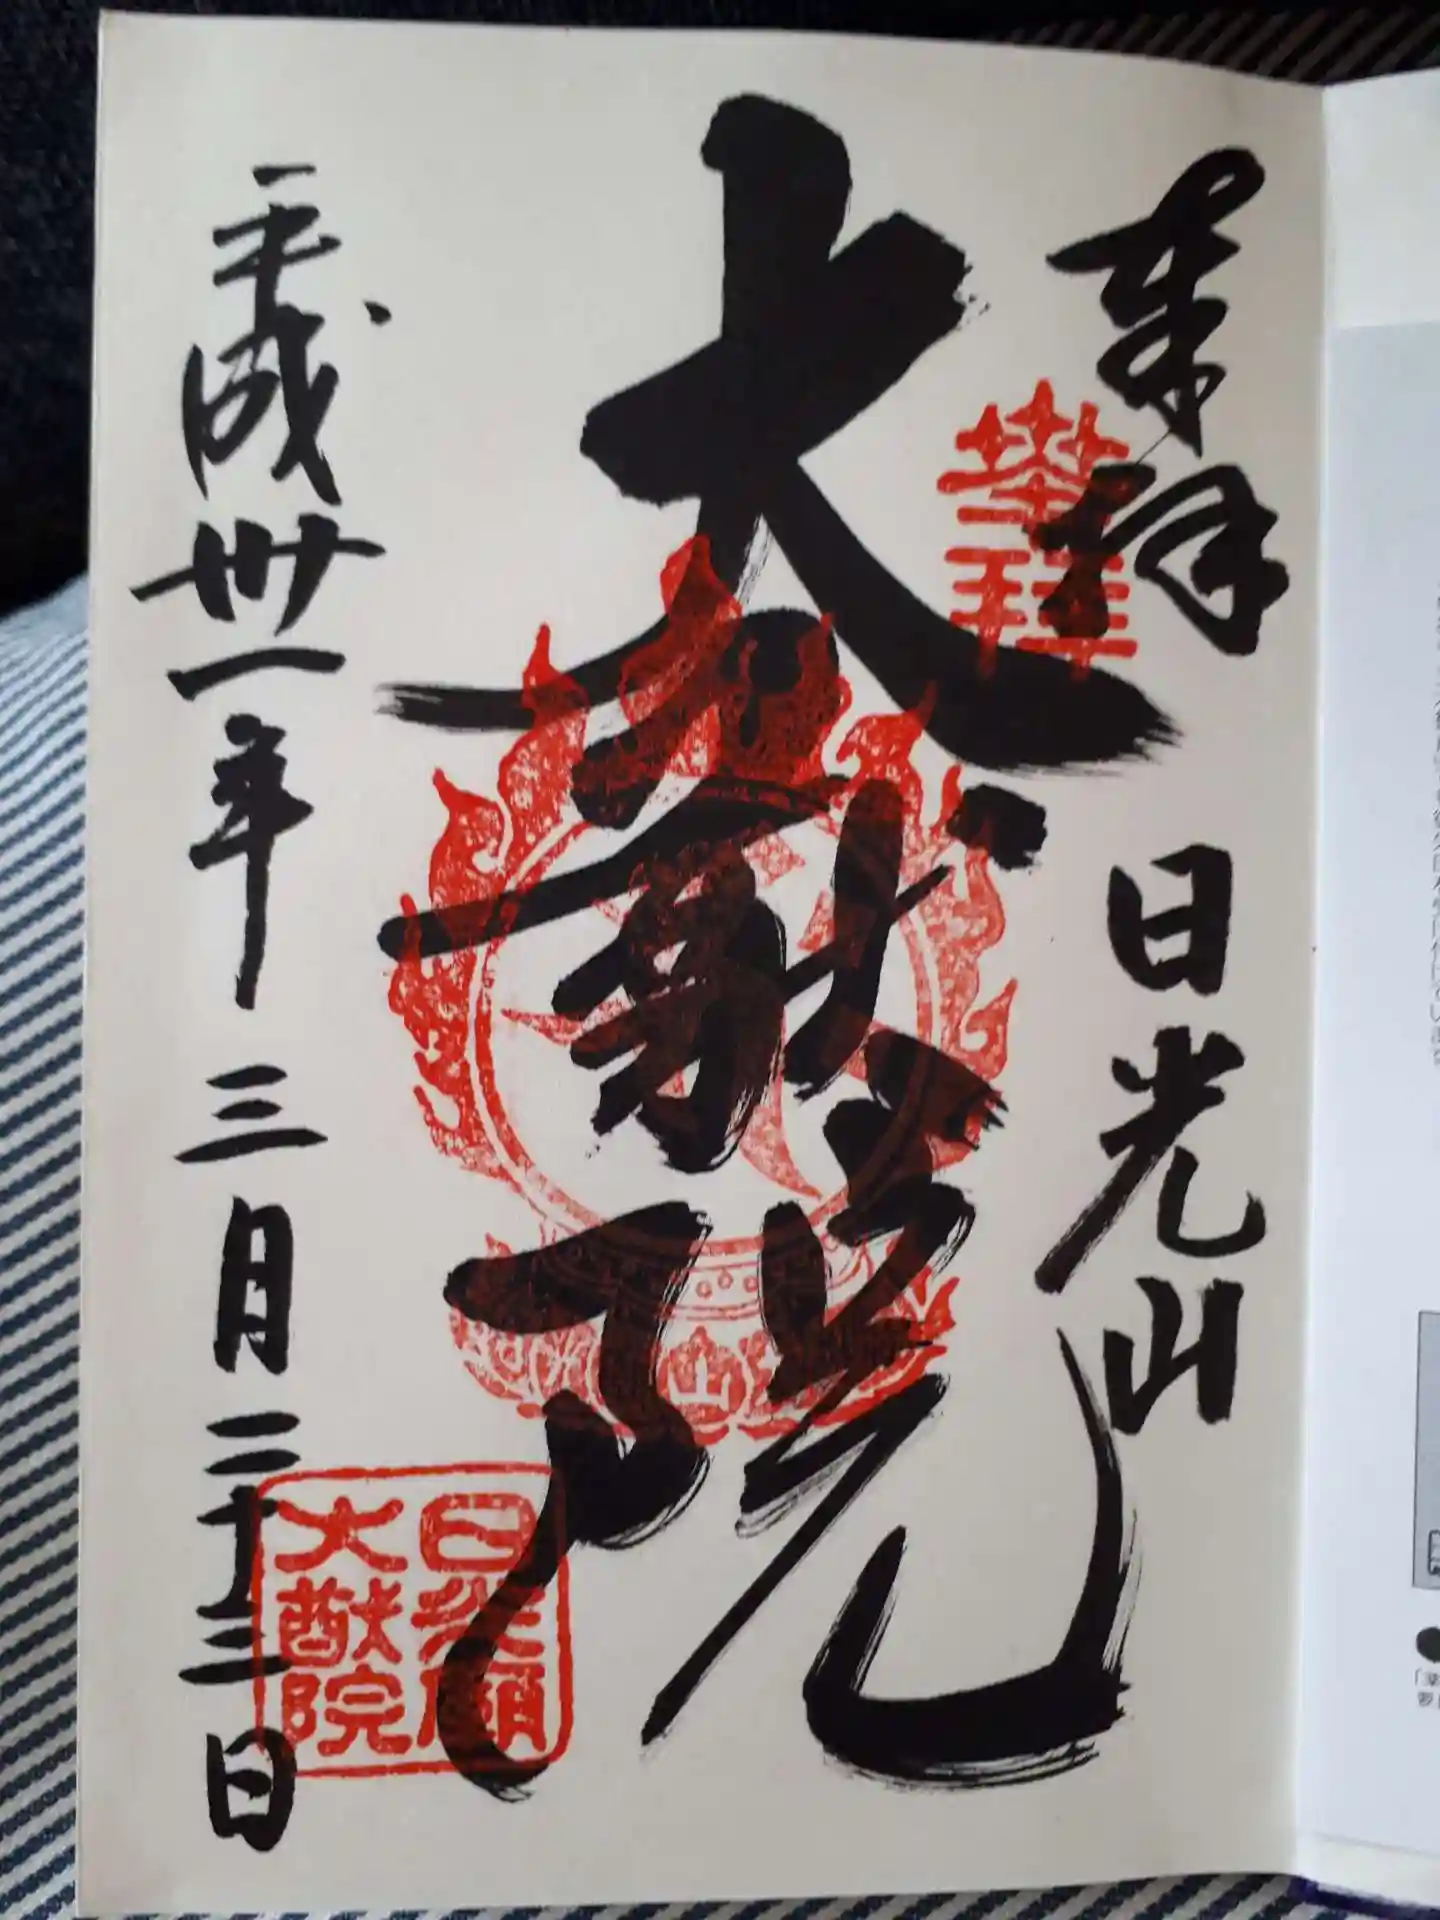 奉拝 日光山
登拝
大猷院
山
平成卅一年 三月 二十三日
日光廟
大猷院